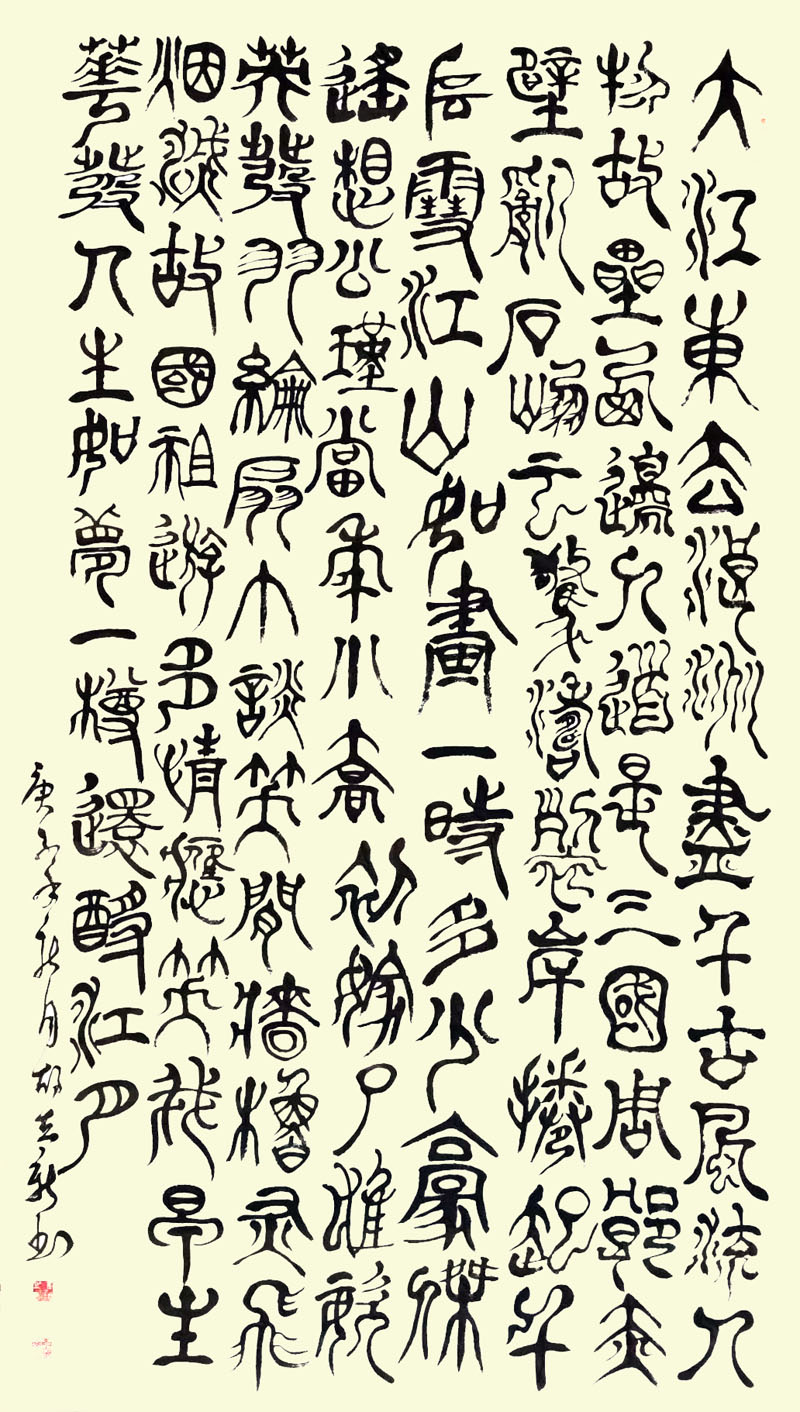 大江東去浪淘盡千古風流人
物故壘西邊人道是三國周郎赤
壁亂石崩云驚濤裂岸捲起千
堆雪江山如畫一時多少豪傑
遙想公瑾當年小喬初嫁了雄姿
英發羽綸扇巾談笑間檣櫓灰飛
烟滅故國祖遊多情應笑我早生
華發人生如夢一樽還酹江月
庚子年秋月胡志新书